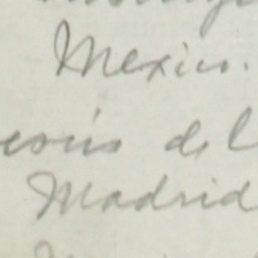 Mexico.
esús de l
Madrid